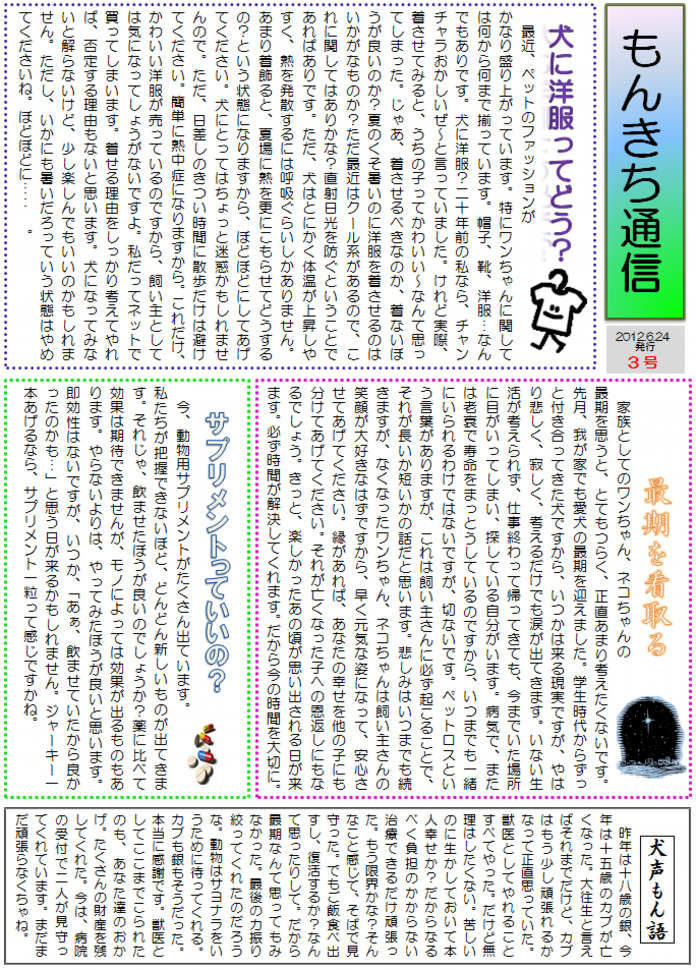 もんきち通信
2012.6.24
発行
3号
犬に洋服ってどう?
最近、ペットのファッションが
かなり盛り上がっています。特にワンちゃんに関して
は何から何まで揃っています。帽子、靴、洋服…なん
でもありです。犬に洋服?二十年前の私なら、チャン
チャラおかしいぜ~と言っていました。けれど実際、
着させてみると、うちの子ってかわいい~なんて思っ
てしまった。じゃあ、着させるべきなのか、着ないほ
うが良いのか?夏のくそ暑いのに洋服を着させるのは
いかがなものか?ただ最近はクール系があるので、こ
れに関してはありかな?直射日光を防ぐということで
あればありです。ただ、犬はとにかく体温が上昇しや
すく、熱を発散するには呼吸ぐらいしかありません。
あまり着飾ると、夏場に熱を更にこもらせてどうする
の?という状態になりますから、ほどほどにしてあげ
てください。犬にとってはちょっと迷惑かもしれませ
んので。ただ、日差しのきつい時間に散歩だけは避け
てください。簡単に熱中症になりますから。これだけ、
かわいい洋服が売っているのですから、飼い主として
は気になってしょうがないですよ。私だってネットで
買ってしまいます。着せる理由をしっかり考えてやれ
ば、否定する理由もないと思います。犬になってみな
いと解らないけど、少し楽しんでもいいのかもしれま
せん。ただし、いかにも暑いだろっていう状態はやめ
てくださいね。ほどほどに……。
最期を看取る
家族としてのワンちゃん、ネコちゃんの
最期を思うと、とてもつらく、正直あまり考えたくないです。
先月、我が家でも愛犬の最期を迎えました。学生時代からずっ
と付き合ってきた犬ですから、いつかは来る現実ですが、やは
り悲しく、寂しく、考えるだけでも涙が出てきます。いない生
活が考えられず、仕事終わって帰ってきても、今までいた場所
に目がいってしまい、探している自分がいます。病気で、また
は老衰で寿命をまっとうしているのですから、いつまでも一緒
にいられるわけではないですが、切ないです。ペットロスとい
う言葉がありますが、これは飼い主さんに必ず起こることで、
それが長いか短いかの話だと思います。悲しみはいつまでも続
きますが、なくなったワンちゃん、ネコちゃんは飼い主さんの
笑顔が大好きなはずですから、早く元気な姿になって、安心さ
せてあげてください。縁があれば、あなたの幸せを他の子にも
分けてあげてください。それが亡くなった子への恩返しにもな
るでしょう。きっと、楽しかったあの頃が思い出される日が来
ます。必ず時間が解決してくれます。だから今の時間を大切に。
サプリメントっていいの?
今、動物用サプリメントがたくさん出ています。
私たちが把握できないほど、どんどん新しいものが出てきま
す。それじゃ、飲ませたほうが良いのでしょうか?薬に比べて
効果は期待できませんが、モノによっては効果が出るものもあ
ります。やらないよりは、やってみたほうが良いと思います。
即効性はないですが、いつか、「あぁ、飲ませていたから良か
ったのかも…」と思う日が来るかもしれません。ジャーキー一
本あげるなら、サプリメント一粒って感じですかね。
犬声もん語
昨年は十八歳の銀、今
年は十五歳のカブが亡
くなった。大往生と言え
ばそれまでだけど、カブ
はもう少し頑張れるか
なって正直思っていた。
獣医としてやれること
すべてやった。だけど無
理はしたくない。苦しい
のに生かしておいて本
人幸せか?だからなる
べく負担のかからない
治療できるだけ頑張っ
た。もう限界かな?そん
なこと感じて、そばで見
守った。でもご飯食べ出
すし、復活するか?なん
て思ったりして。だから
最期なんて思ってもみ
なかった。最後の力振り
絞ってくれたのだろう
な。動物はサヨナラをい
うために待ってくれる。
カブも銀もそうだった。
本当に感謝です。獣医と
してここまでこられた
のも、あなた達のおか
げ。たくさんの財産を残
してくれた。今は、病院
の受付で二人が見守っ
てくれています。まだま
だ頑張らなくちゃね。